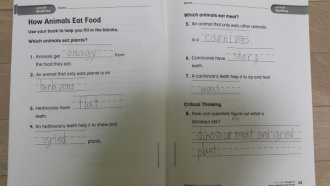 Name
Outline
How Animals Eat Food
Use your book to help you fill in the blanks.
Which animals eat plants?
1. Animals get energy from
the food they eat.
2. An animal that only eats plants is an
herbivore
3. Herbivores have flat
teeth.
4. An herbivore's teeth help it to chew and
grind plants.
Name
Outline
Which animals eat meat?
5. An animal that only eats other animals
is a carnivore
6. Carnivores have sharp
teeth.
7. A carnivore's teeth help it to rip and tear
meat
Critical Thinking
8. How can scientists figure out what a
dinosaur ate?
dinosaur meat and grind
plant